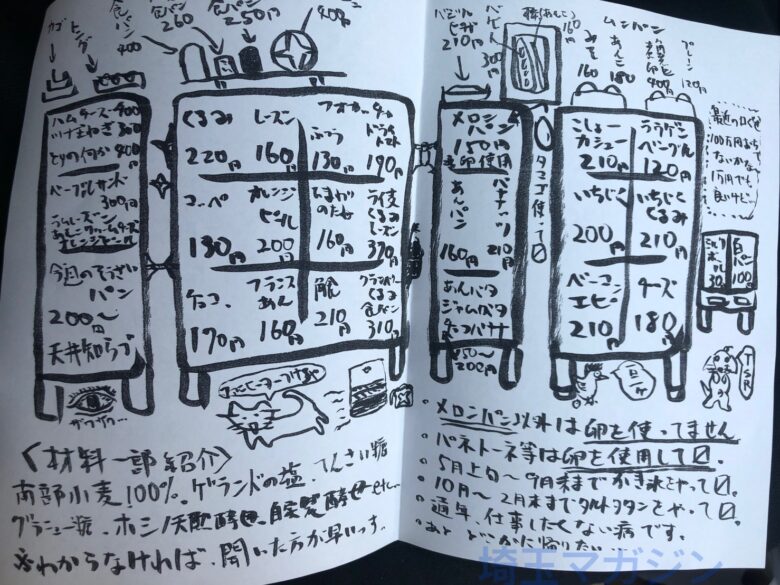 カゴ
トング
食パン
400
食パン
260
食パン
250円
400円
ハムチーズ 400
とりの何か 400円
ベーグルサンド
300円
ラムレーズン
オレンジピール
今週のそうざい
パン
200〜
円
天井知らづ
くるみ
220円
レーズン
160円
ぷつう
130円
190円
コッペ
180円
オレンジ
ピール
200円
160円
ライ麦
くるみ
レーズン
370円
チョコ
170円
フランス
あん
160円
210円
クランベリー
くるみ
食パン
310円
210円
300円
160円
メロン
パン
150円
卵使用
あんパン
160円
210円
あんバタ
ジャムバタ
チョコバナナ
150〜
200円
タマゴ使って〼
160
あんこ
180
400円
プレーン
120円
こしょー
カシュー
210円
ベーグル
120円
いちじく
200円
いちじく
くるみ
210円
ベーコン
エピ
210円
チーズ
180円
最近の口ぐせ
100万円おちて
ないかな
1万円でも
良いけど…
ミルク
ボール
30円
白パン
100円
〈材料一部紹介〉
南部小麦100%、ゲランドの塩、てんさい糖
グラニュー糖、ホシノ天然酵母、自家製酵母etc…
※わからなければ、聞いた方が早いっす。
・メロンパン以外は卵を使ってません
・パネトーネ等は卵を使用して〼。
・5月上旬〜9月末までかき氷やって〼。
・10月〜2月末までタルトタタンをやって〼。
・通年、仕事したくない病です。
・あと どこかに帰りたい…
埼玉マガジン